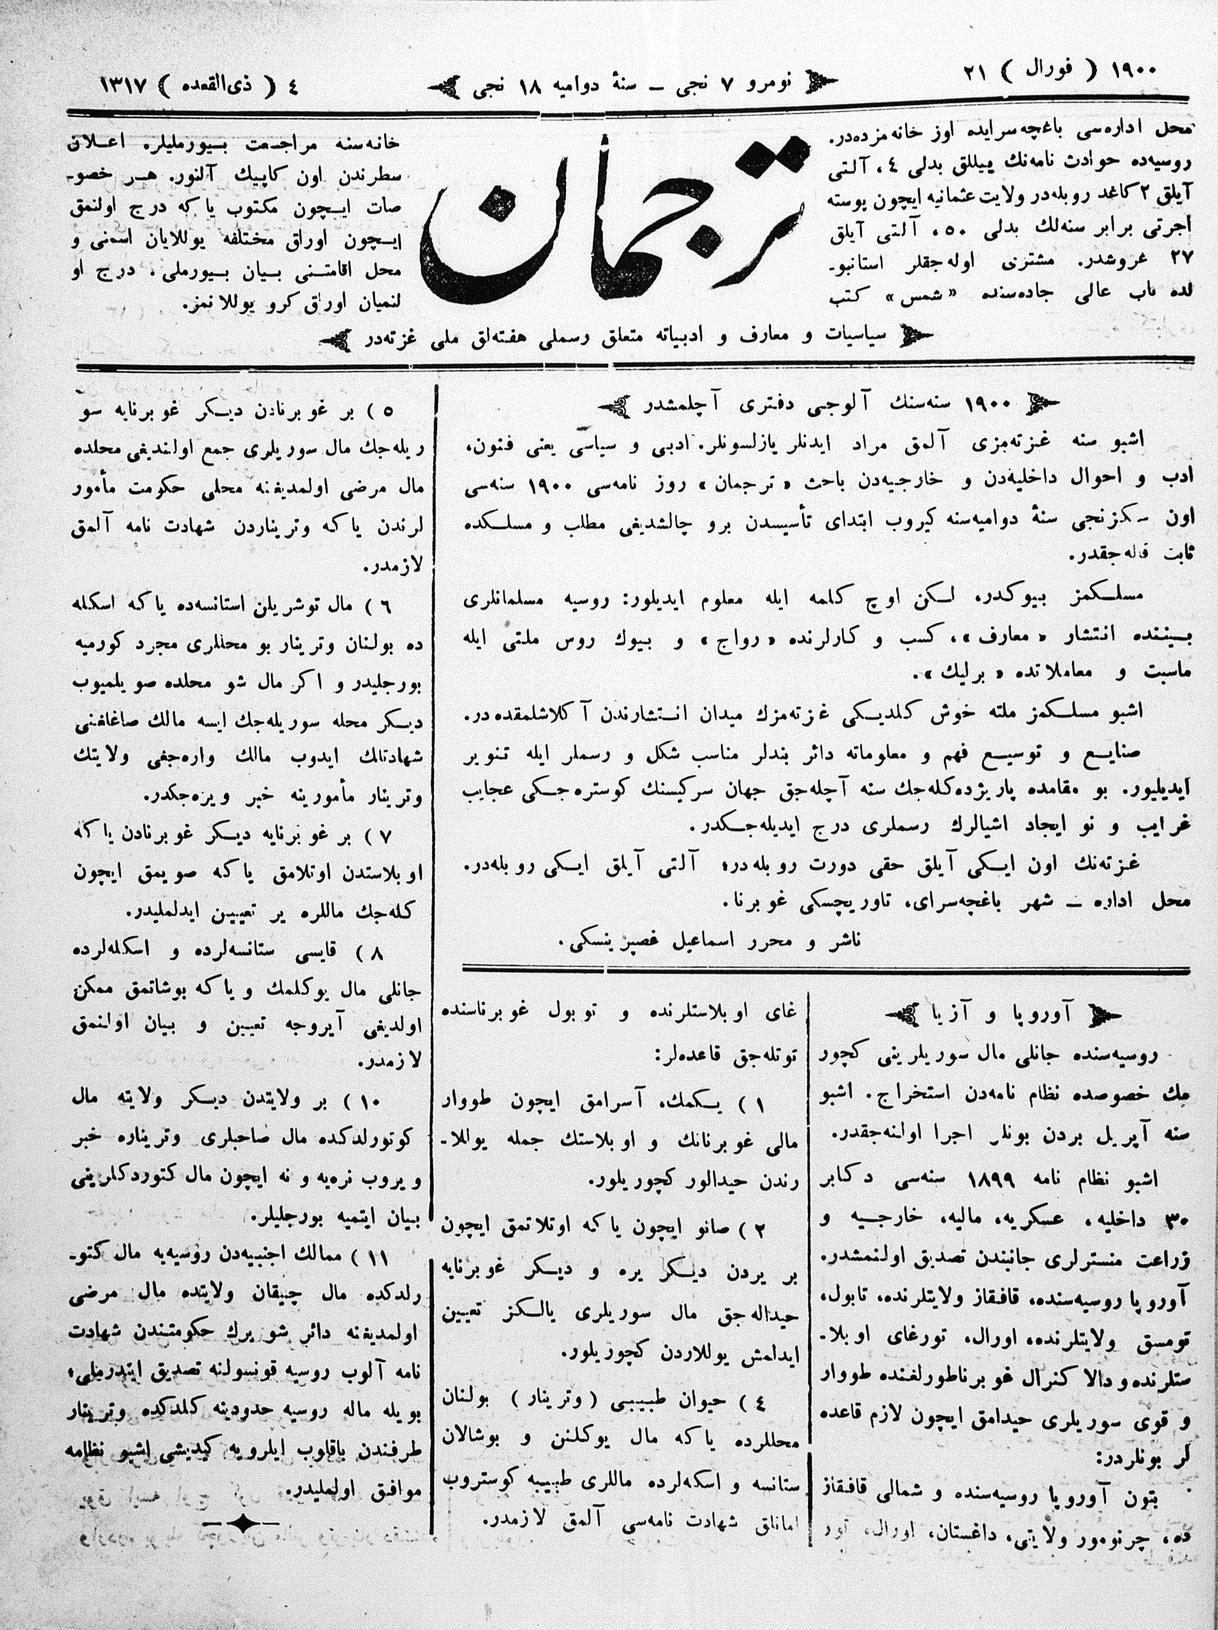 ١٩٠٠ ( فورال ) ٢١
نومرو ٧ نجی ــ سنهٔ دوامیه ١٨ نجی
٤ ( ذی القعده ) ١٣١٧
محل اداره‌سی باغچه‌سرایده اوز خانه‌مزده‌در.
روسیه‌ده حوادث نامه‌نك ییللق بدلی ٤، آلتی
آیلق ٢ كاغد روبله‌در ولایت عثمانیه ایچون پوسته
اجرتی برابر سنه‌لك بدلی ٥٠، آلتی آیلق
٢٧ غروشدر. مشتری اوله‌جقلر استانبو-
لده باب عالی جاده‌سنده «شمس» كتب
ترجمان
خانه‌سنه مراجعت بیورملیلر. اعلان
سطرندن اون كاپیك آلنور. هر خصو-
صات ایچون مكتوب یاكه درج اولنمق
ایچون اوراق مختلفه یوللایان اسمنی و
محل اقامتنی بیان بیورملی، درج او
لنمیان اوراق كرو یوللانمز.
سیاسیات و معارف و ادبیاته متعلق رسملی هفته‌لق ملی غزته‌در
١٩٠٠ سنه‌سنك آلوجی دفتری آچلمشدر
اشبو سنه غزته‌مزی آلمق مراد ایدنلر یازلسونلر. ادبی و سیاسی یعنی فنون،
ادب و احوال داخلیه‌دن و خارجیه‌دن باحث «ترجمان» روز نامه‌سی ١٩٠٠ سنه‌سی
اون سكزنجی سنهٔ دوامیه‌سنه كیروب ابتدای تأسیسدن برو چالشدیغی مطلب و مسلكده
ثابت قاله‌جقدر.
مسلكمز بیوكدر، لكن اوچ كلمه ایله معلوم ایدیلور: روسیه مسلمانلری
بیننده انتشار «معارف»، كسب و كارلرنده «رواج» و بیوك روس ملتی ایله
ماسبت و معاملاتده «برلیك».
اشبو مسلكمز ملته خوش كلدیكی غزته‌مزك میدان انتشارندن آكلاشلمقده‌در.
صنایع و توسیع فهم و معلوماته دائر بندلر مناسب شكل و رسملر ایله تنویر
ایدیلیور. بو مقامده پاریژده كله‌جك سنه آچله‌جق جهان سركیسنك كوستره‌جكی عجایب
غرایب و نو ایجاد اشیالرك رسملری درج ایدیله‌جكدر.
غزته‌نك اون ایكی آیلق حقی دورت روبله‌در؛ آلتی آیلق ایكی روبله‌در.
محل اداره ــ شهر باغچه‌سرای، تاوریچسكی غوبرنا.
ناشر و محرر اسماعیل غصپرینسكی.
آوروپا و آزیا
روسیه‌سنده جانلی مال سوریلرینی كچور
مك خصوصده نظام نامه‌دن استخراج. اشبو
سنه آپریل بردن بونلر اجرا اولنه‌جقدر.
اشبو نظام نامه ١٨٩٩ سنه‌سی دكابر
٣٠ داخلیه، عسكریه، مالیه، خارجیه و
زراعت منسترلری جانبندن تصدیق اولنمشدر.
آوروپا روسیه‌سنده، قافقاز ولایتلرنده، تابول،
تومسق ولایتلرنده، اورال، تورغای اوبلا-
ستلرنده و دالا كنرال غوبرناطورلغنده طووار
و قوی سوریلری حیدامق ایچون لازم قاعده
لر بونلردر:
بتون آوروپا روسیه‌سنده و شمالی قافقاز
ده، چرنومور ولایتی، داغستان، اورال، تور
غای اوبلاستلرنده و توبول غوبرناسنده
توتله‌جق قاعده‌لر:
١ ) یكمك، آسرامق ایچون طووار
مالی غوبرنانك و اوبلاستك جمله یوللا-
رندن حیدالور كچوریلور.
٢ ) صانو ایچون یاكه اوتلاتمق ایچون
بر یردن دیكر یره و دیكر غوبرنایه
حیداله‌جق مال سوریلری یالكز تعیین
ایدلمش یوللاردن كچوریلور.
٤ ) حیوان طبیبی ( وترینار ) بولنان
محللرده یاكه مال یوكلنن و بوشالان
ستانسه و اسكه‌لرده ماللری طبیبه كوستروب
امانلق شهادت نامه‌سی آلمق لازمدر.
٥ ) بر غوبرنادن دیكر غوبرنایه سو
ریله‌جك مال سوریلری جمع اولندیغی محلده
مال مرضی اولمدیغنه محلی حكومت مأمور
لرندن یاكه وتریناردن شهادت نامه آلمق
لازمدر.
٦ ) مال توشریلن استانسه‌ده یاكه اسكله
ده بولنان وترینار بو محللری مجرد كورمیه
بورجلیدر و اكر مال شو محلده صویلمیوب
دیكر محله سوریله‌جك ایسه مالك صاغلغنی
شهادتلك ایدوب مالك واره‌جغی ولایتك
وترینار مأمورینه خبر ویره‌جكدر.
٧ ) بر غوبرنایه دیكر غوبرنادن یاكه
اوبلاستدن اوتلامق یاكه صویمق ایچون
كله‌جك ماللره یر تعیین ایدلملیدر.
٨ ) قایسی ستانسه‌لرده و اسكله‌لرده
جانلی مال یوكلمك و یاكه بوشاتمق ممكن
اولدیغی آیروجه تعیین و بیان اولنمق
لازمدر.
١٠ ) بر ولایتدن دیكر ولایته مال
كوتورلدكده مال صاحبلری وتریناره خبر
ویروب نره‌یه و نه ایچون مال كتوردكلرینی
بیان ایتمیه بورجلیلر.
١١ ) ممالك اجنبیه‌دن روسیه‌یه مال كتو-
رلدكده مال چیقان ولایتده مال مرضی
اولمدیغنه دائر شو یرك حكومتندن شهادت
نامه آلوب روسیه قونسولنه تصدیق ایتدرملی؛
بویله ماله روسیه حدودینه كلدكده وترینار
طرفندن باقلوب ایلرویه كیدیشی اشبو نظامه
موافق اولملیدر.